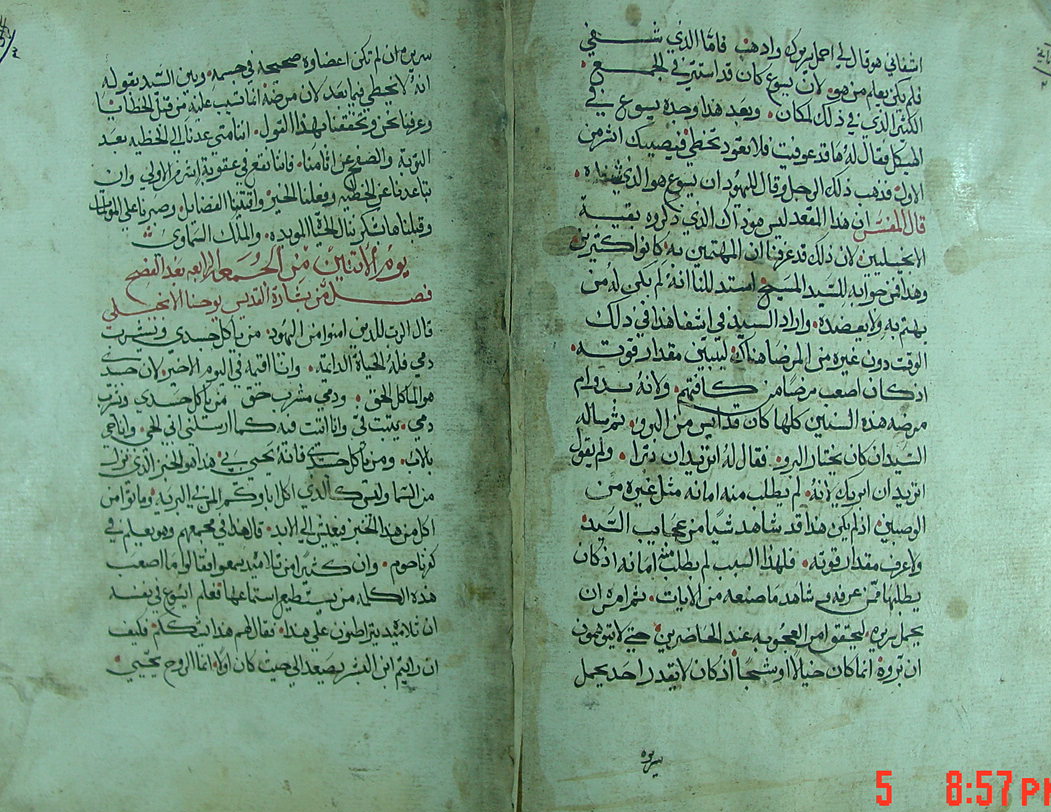 اشفاني هو قال لي احمل سريرك واذهب فاما الذي شفي
فلم يكن يعلم من هو لان يسوع كان قد استتر في الجمع
الكثير الذي في ذلك المكان وبعد هذا وحده يسوع في
الهيكل فقال له ها قد عوفيت فلا تعود تخطي فيصيبك اشر من
الاول فذهب ذلك الرجل وقال لليهود ان يسوع هو الذي شفاه
قال المفسر ان هذا المقعد ليس هو ذاك الذي ذكروه بقية
الانجيليين لان ذلك قد عرفنا ان المهتمين به كانوا كثيرين
وهذا فمن جوابه للسيد المسيح استدللنا انه لم يكن له من
يهتم به ولا يعضده واراد السيد في اشفا هذا في ذلك
الوقت دون غيره من المرضا هناك ليتبين مقدار قوته
اذ كان اصعب مرضا من كافتهم ولانه بدوام
مرضه هذه السنين كلها كان قد ايس من البرو ثم ساله
السيد ان كان يختار البرو فقال له اتريد ان تبرا ولم يقول
اتريد ان ابريك لانه لم يطلب منه امانه مثل غيره من
الوصبين اذ لم يكن هذا قد شاهد شيا من عجايب السيد
ولا عرف مقدار قوته فلهذا السبب لم يطلب منه امانه اذ كان
يطلبها ممن عرفه وشاهد ما صنعه من الايات ثم امره ان
يحمل سريره ليتحقق امر العجوبه عند الحاضرين حتى لا يتوهمون
ان بروه انما كان خيالا او شبحا اذ كان لا يقدر احد يحمل
سريره
سريره ان لم تكن اعضاوه صحيحه في جسمه وبين السيد بقوله
انه لا يخطي فيما بعد لان مرضه انما تسبب عليه من قبل الخطايا
وعرفنا نحن وتحققنا بهذا القول اننا متى عدنا الى الخطيه بعد
التوبة والصفح عن اثامنا فاننا نقع في عقوبة اشر من الاولى وان
تباعدنا عن الخطيه وفعلنا الخير واقتنينا الفضايل وصبرنا على
وقبلناها بشكر ننال الحياة الموبده والملك السماوي
يوم الاثنين من الجمعة الرابعه بعد الفصح
فصل من بشارة القديس يوحنا الانجيلي
قال الرب للذين امنوا من اليهود من ياكل جسدي ويشرب
دمي فله الحياة الدايمه وانا اقيمه في اليوم الاخير لان جسدي
هو الماكل الحق ودمي مشرب حق من ياكل جسدي ويشرب
دمي يثبت في وانا اثبت فيه كما ارسلني ابي الحي وانا حي
بالاب ومن ياكل جسدي فانه يحيى بي هذا هو الخبز الذي نزل
من السما وليس كالذي اكل اباوكم المن في البريه وماتوا من
اكل من هذا الخبز فيعيش الى الابد قال هذا في مجمعهم وهو يعلم في
كفرناحوم وان كثيرا من تلاميذه سمعوا فقالوا ما اصعب
هذه الكلمه من يستطيع استماعها فعلم ايسوع في نفسه
ان تلاميذه يتراطنون على هذا فقال لهم هذا يشككم فكيف
ان رايتم ابن البشر يصعد الى حيث كان اولا انما الروح يحيي
5 8:57 PM